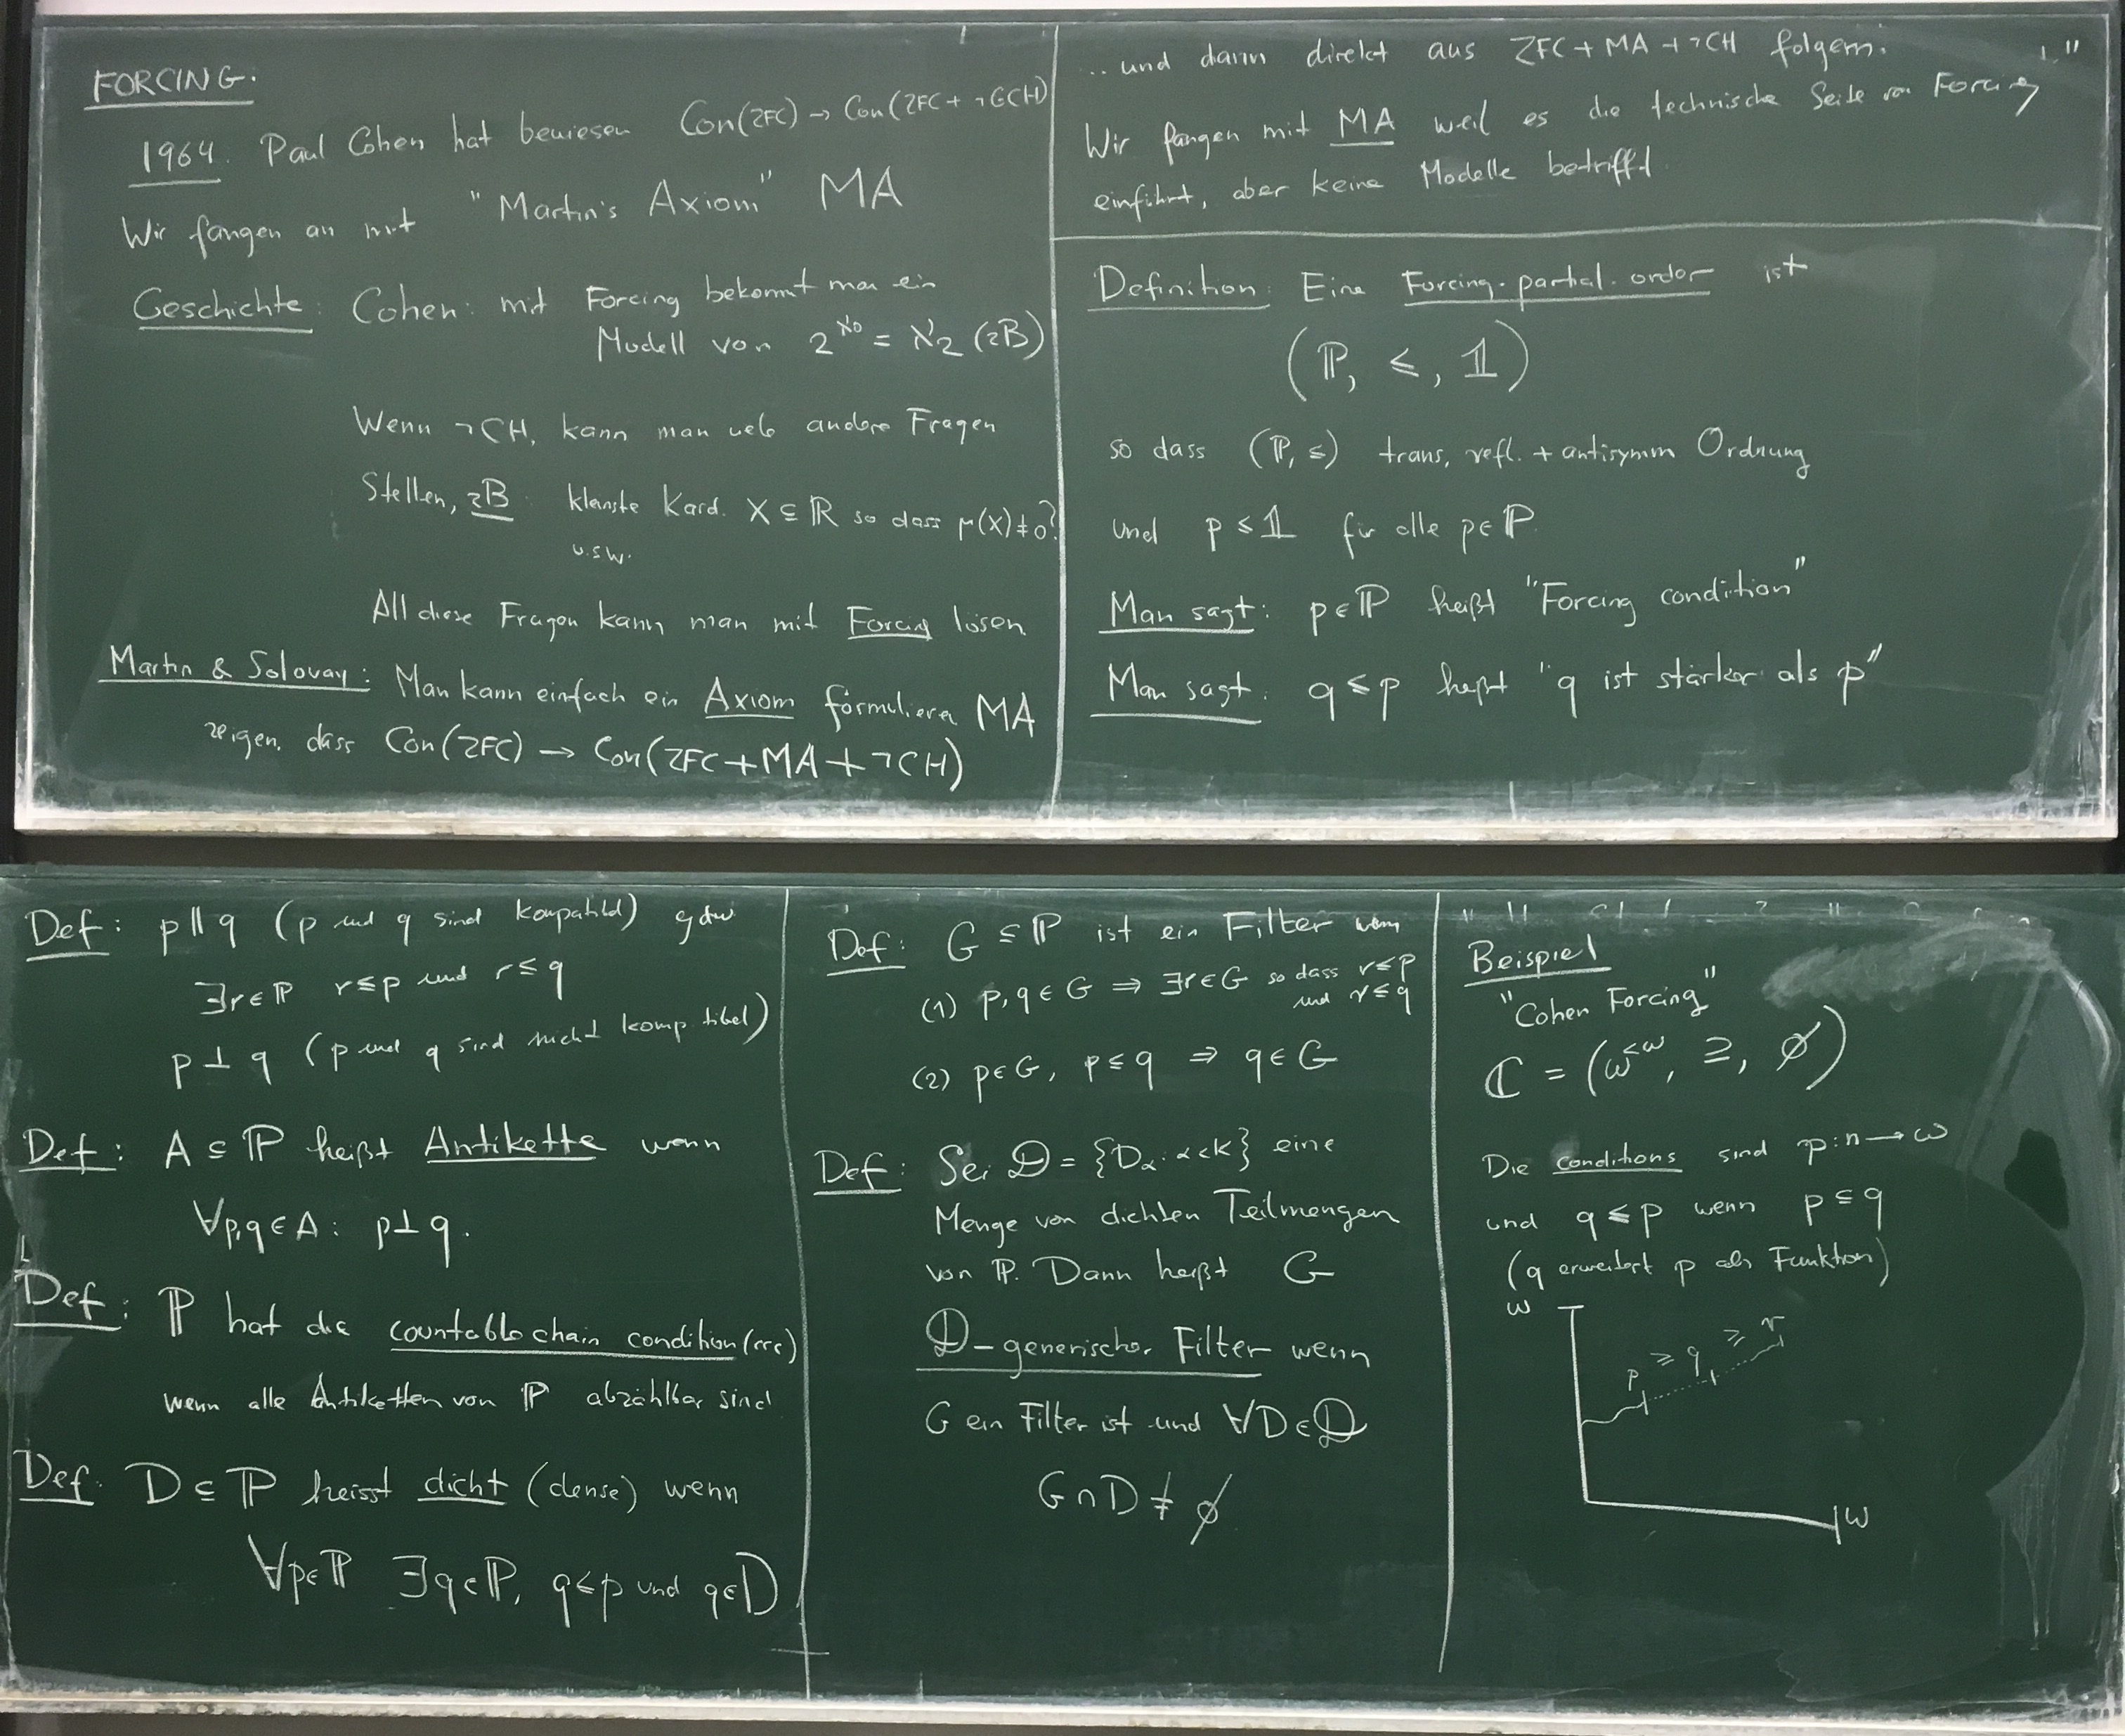 FORCING.
1964. Paul Cohen hat bewiesen Con(ZFC) → Con(ZFC + ¬GCH)
Wir fangen an mit "Martin's Axiom" MA
Geschichte: Cohen: mit Forcing bekommt man ein
Modell von 2^ℵ0 = ℵ2 (zB)
Wenn ¬CH, kann man viele andere Fragen
Stellen, zB: kleinste Kard. X ⊆ ℝ so dass μ(X) ≠ 0?
u.s.w.
All diese Fragen kann man mit Forcing lösen
Martin & Solovay: Man kann einfach ein Axiom formulieren MA
zeigen, dass Con(ZFC) → Con(ZFC + MA + ¬CH)
... und dann direkt aus ZFC + MA + ¬CH folgern.
Wir fangen mit MA weil es die technische Seite von Forcing
einführt, aber keine Modelle betrifft
Definition: Eine Forcing-partial-order ist
(ℙ, ≤, 𝟙)
so dass (ℙ, ≤) trans, refl. + antisymm Ordnung
und p ≤ 𝟙 für alle p ∈ ℙ.
Man sagt: p ∈ ℙ heißt "Forcing condition"
Man sagt: q ≤ p heißt "q ist stärker als p"
Def: p ∥ q (p und q sind kompatibel) gdw
∃r ∈ ℙ r ≤ p und r ≤ q
p ⊥ q (p und q sind nicht kompatibel)
Def: A ⊆ ℙ heißt Antikette wenn
∀p,q ∈ A: p ⊥ q.
Def: ℙ hat die countable chain condition (ccc)
wenn alle Antiketten von ℙ abzählbar sind
Def: D ⊆ ℙ heisst dicht (dense) wenn
∀p ∈ ℙ ∃q ∈ ℙ, q ≤ p und q ∈ D
Def: G ⊆ ℙ ist ein Filter wenn
(1) p, q ∈ G ⇒ ∃r ∈ G so dass r ≤ p
und r ≤ q
(2) p ∈ G, p ≤ q ⇒ q ∈ G
Def: Sei 𝒟 = {D_α : α < κ} eine
Menge von dichten Teilmengen
von ℙ. Dann heißt G
𝒟-generischer Filter wenn
G ein Filter ist und ∀D ∈ 𝒟
G ∩ D ≠ ∅
Beispiel
"Cohen Forcing"
ℂ = (ω^<ω, ⊇, ∅)
Die conditions sind p: n → ω
und q ≤ p wenn p ⊆ q
(q erweitert p als Funktion)
ω
p ≥ q ≥ r
ω